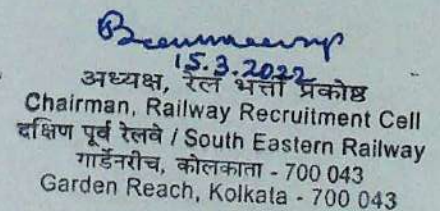 15.3.2022
अध्यक्ष, रेल भर्ती प्रकोष्ठ
Chairman, Railway Recruitment Cell
दक्षिण पूर्व रेलवे / South Eastern Railway
गार्डेनरीच, कोलकाता - 700 043
Garden Reach, Kolkata - 700 043